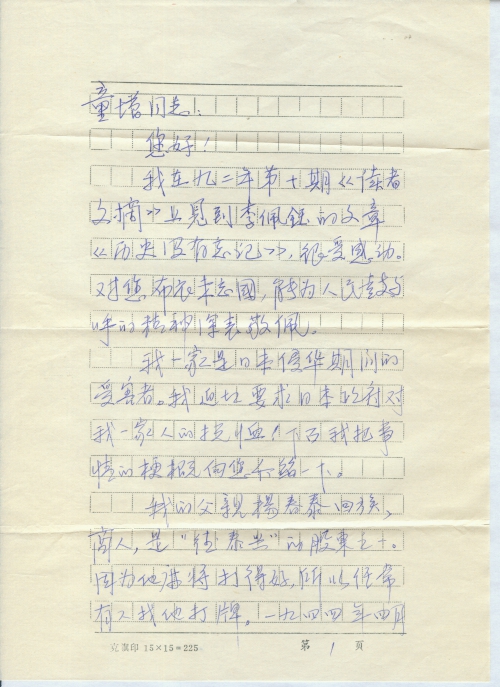 童增同志:
您好!
我在九二年第十期《读者
文摘》上见到李佩钰的文章
《历史没有忘记》,很受感动。
对您布衣未忘國,能为人民
呼的精神深表敬佩。
我一家是日本侵华期间的
受害者。我迫切要求日本政府对
我一家人的损恤!下面我把事
情的梗概向您介绍一下。
我的父親楊春泰回族,
商人,是“德泰兴”的股東之一。
因为他麻将打得好,所以经常
有人找他打牌。一九四四年四月
立新印 15×15=225 第 1 頁